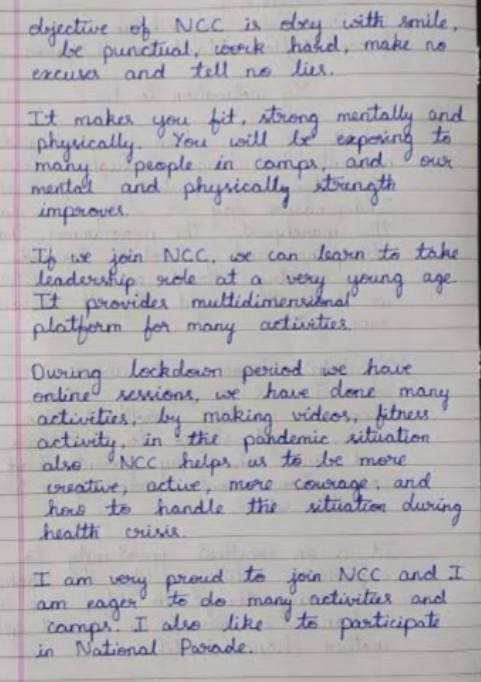 objective of NCC is obey with smile,
be punctual, work hard, make no
excuses and tell no lies.
It makes you fit, strong mentally and
physically. You will be exposing to
many people in camps, and our
mental and physically strength
improves.
If we join NCC, we can learn to take
leadership role at a very young age.
It provides multidimensional
platform for many activities.
During lockdown period we have
online sessions, we have done many
activities, by making videos, fitness
activity, in the pandemic situation
also NCC helps us to be more
creative, active, more courage, and
how to handle the situation during
health crisis.
I am very proud to join NCC and I
am eager to do many activities and
camps. I also like to participate
in National Parade.